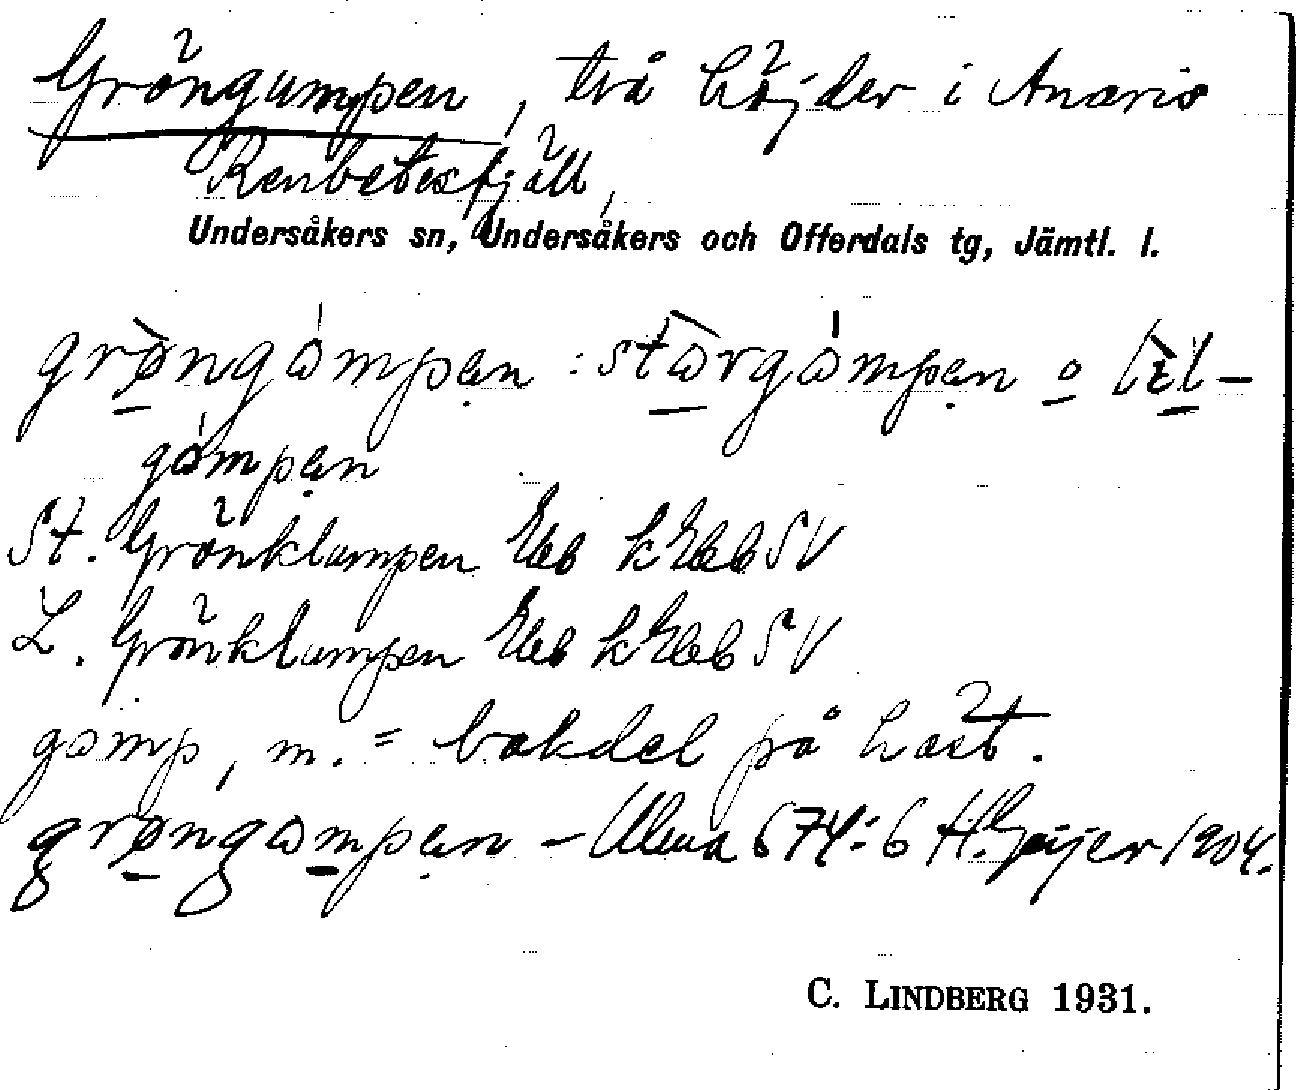 Gröngumpen, två höjder i Anaris
Renbetesfjäll,
Undersåkers sn, Undersåkers och Offerdals tg, Jämtl. l.
grøngompən : storgompən o lil-
gompən
St. Grönklumpen Eeb kEebSV
L. Grönklumpen Eeb kEebSV
gomp, m. = bakdel på häst.
grøngompən – Ulma 674:6 H. Geijer 1904.
C. LINDBERG 1931.